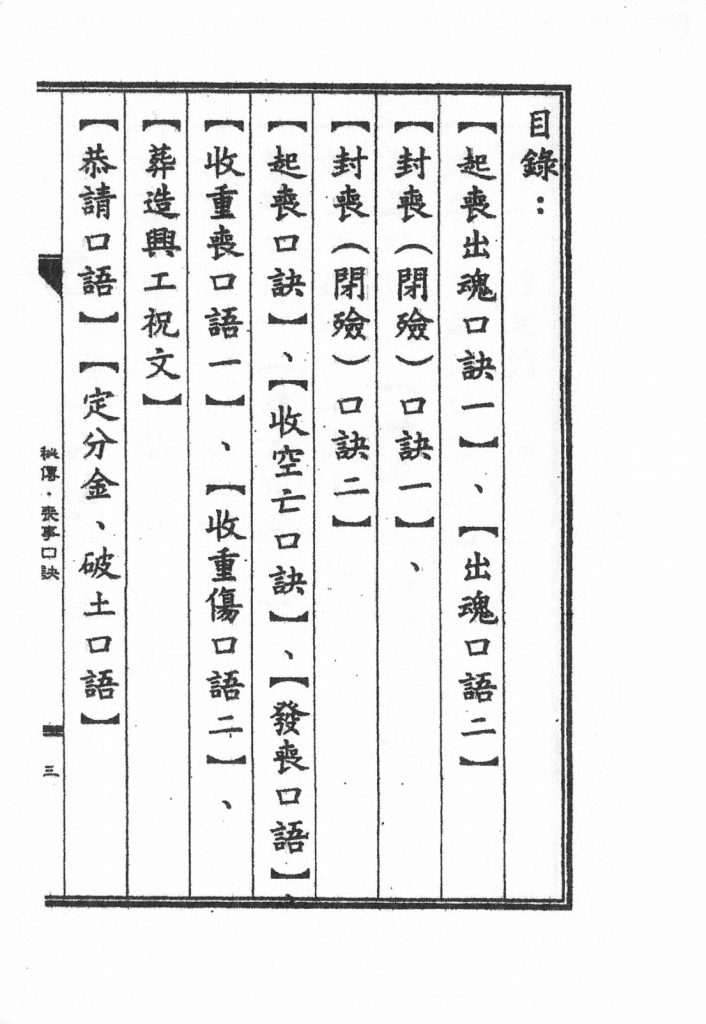 目錄：
【起喪出魂口訣一】、【出魂口語二】
【封喪（閉殮）口訣一】、
【封喪（閉殮）口訣二】
【起喪口訣】、【收空亡口訣】、【發喪口語】、
【收重喪口語一】、【收重傷口語二】、
【葬造興工祝文】
【恭請口語】【定分金、破土口語】
秘傳·喪事口訣
三